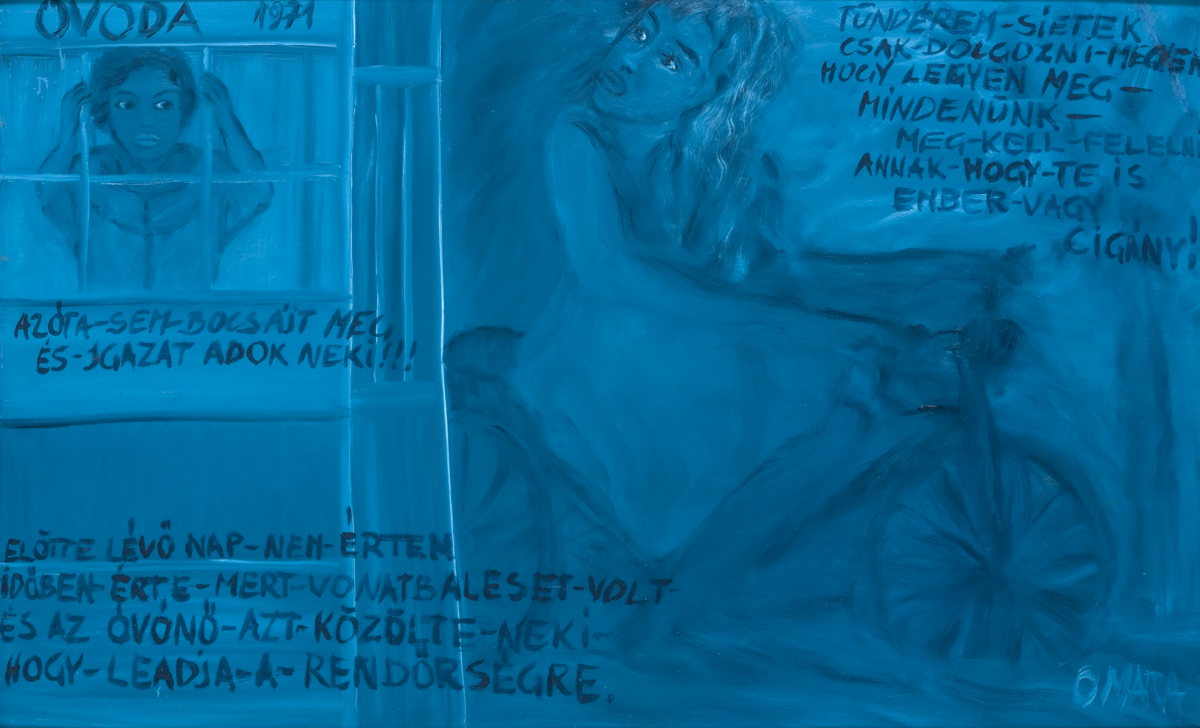 ÓVODA 1971
TÜNDÉREM-SIETEK
CSAK-DOLGOZNI-MEGYEK
HOGY LEGYEN MEG-
MINDENÜNK-
MEG-KELL-FELELNI
ANNAK-HOGY-TE IS
EMBER-VAGY
CIGÁNY!
AZÓTA-SEM-BOCSÁJT MEG
ÉS-IGAZAT ADOK NEKI!!!
ELŐTTE LÉVŐ NAP-NEM-ÉRTEM
IDŐBEN-ÉRTE-MERT-VONATBALESET-VOLT-
ÉS AZ ÓVÓNŐ-AZT-KÖZÖLTE-NEKI-
HOGY-LEADJA-A-RENDŐRSÉGRE.
OMARA